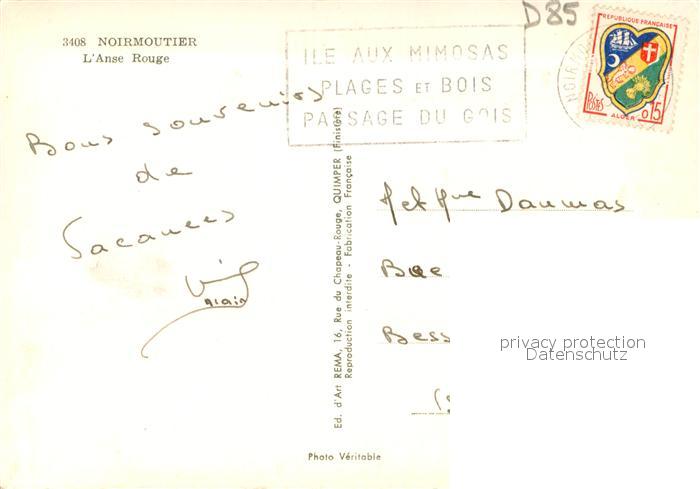 3408 NOIRMOUTIER
L'Anse Rouge
D85
ILE AUX MIMOSAS
PLAGES ET BOIS
PASSAGE DU GOIS
NOIRMO
REPUBLIQUE FRANÇAISE
POSTES
0,15
ALGER
Bons souvenirs
de
Vacances
Alain
Ed. d'Art REMA, 16, Rue du Chapeau-Rouge, QUIMPER (Finistère)
Reproduction interdite - Fabrication Française
M et Mme Daumas
Bess
privacy protection
Datenschutz
Photo Véritable